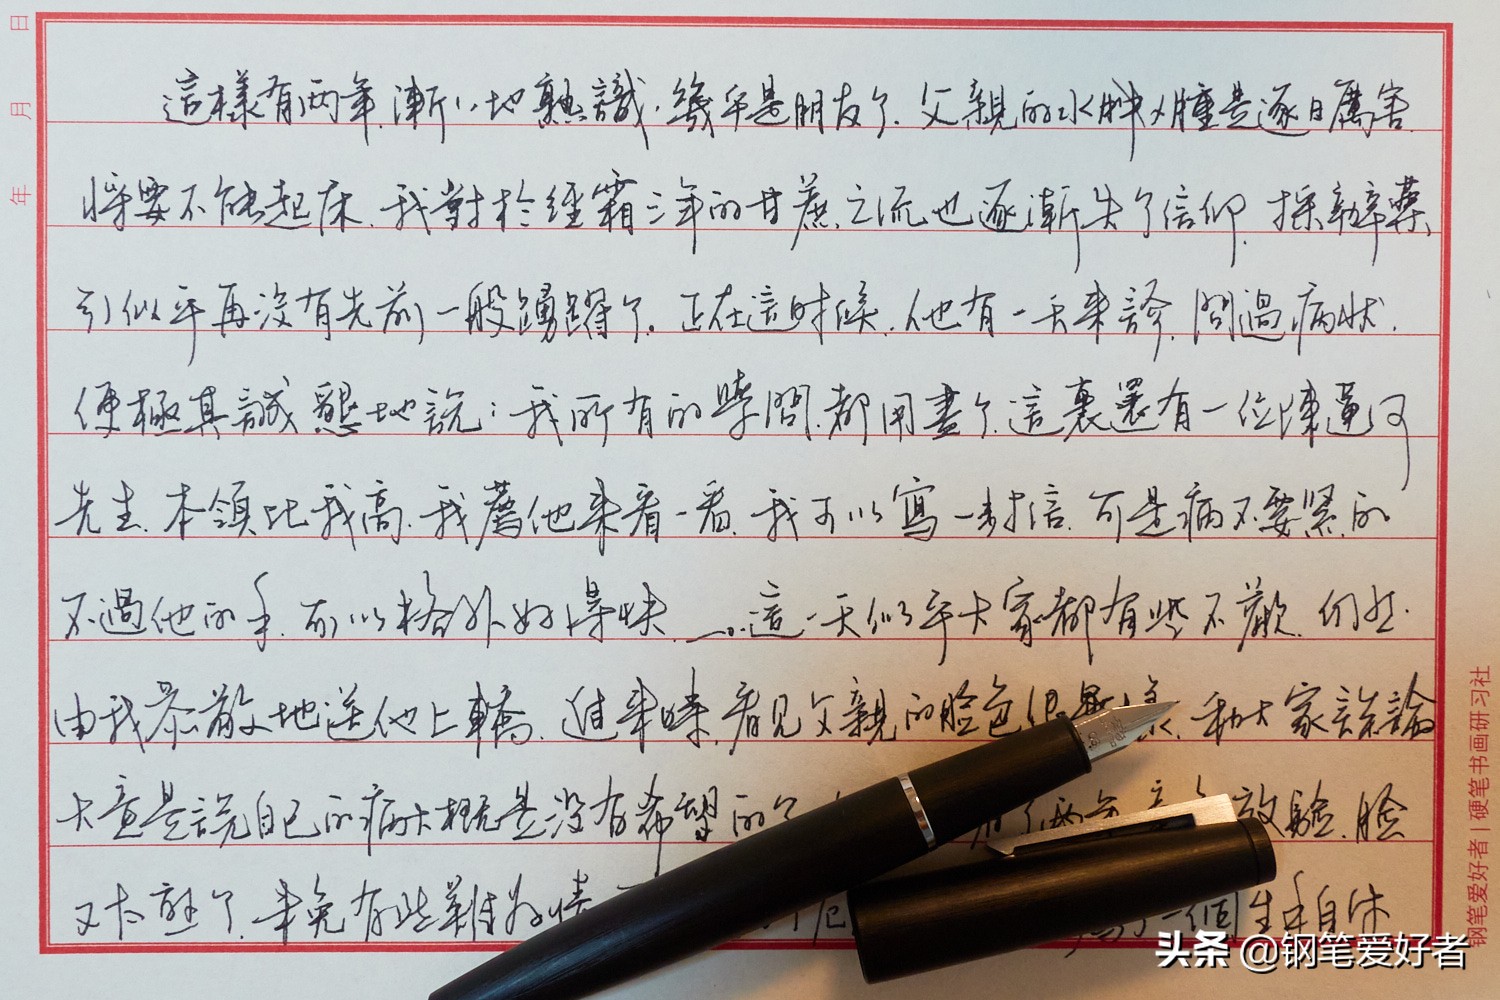 這樣有兩年,漸〻地熟識,幾乎是朋友了.父親的水腫是逐日厲害,
將要不能起床.我對於經霜三年的甘蔗之流也逐漸失了信仰,採辦藥
引似乎再沒有先前一般踴躍了。正在這时候,他有一天來診,問過病状,
便極其誠懇地說:我所有的學問,都用盡了.這裏還有一位陳蓮河
先生,本領比我高.我薦他來看一看,我可以寫一封信.可是病不要緊的
不過他的手,可以格外好得快……這一天似乎大家都有些不歡,仍然
由我恭敬地送他上轎.進來時,看見父親的脸色很異樣,和大家談論
大意是說自己的病大概是沒有希望的了 看了兩年 效驗,臉
又太熟了,未免有些難为情 一個生手自代
日
月
年
钢笔爱好者 | 硬笔书画研习社
头条 @钢笔爱好者